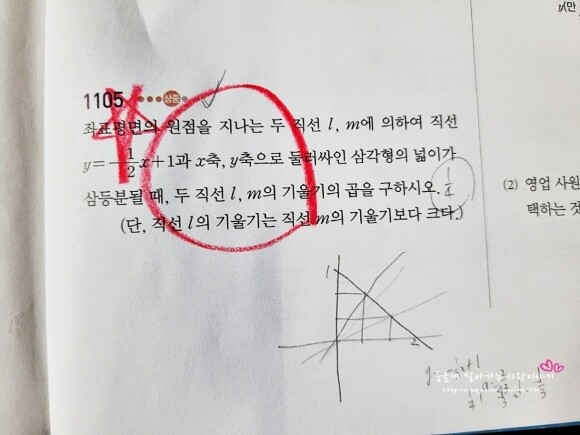 1105 상중
좌표평면의 원점을 지나는 두 직선 l, m에 의하여 직선
y=-1/2x+1과 x축, y축으로 둘러싸인 삼각형의 넓이가
삼등분될 때, 두 직선 l, m의 기울기의 곱을 구하시오.
(단, 직선 l의 기울기는 직선 m의 기울기보다 크다.)
1/4
(2) 영업 사원
택하는 것
y(만
1
2